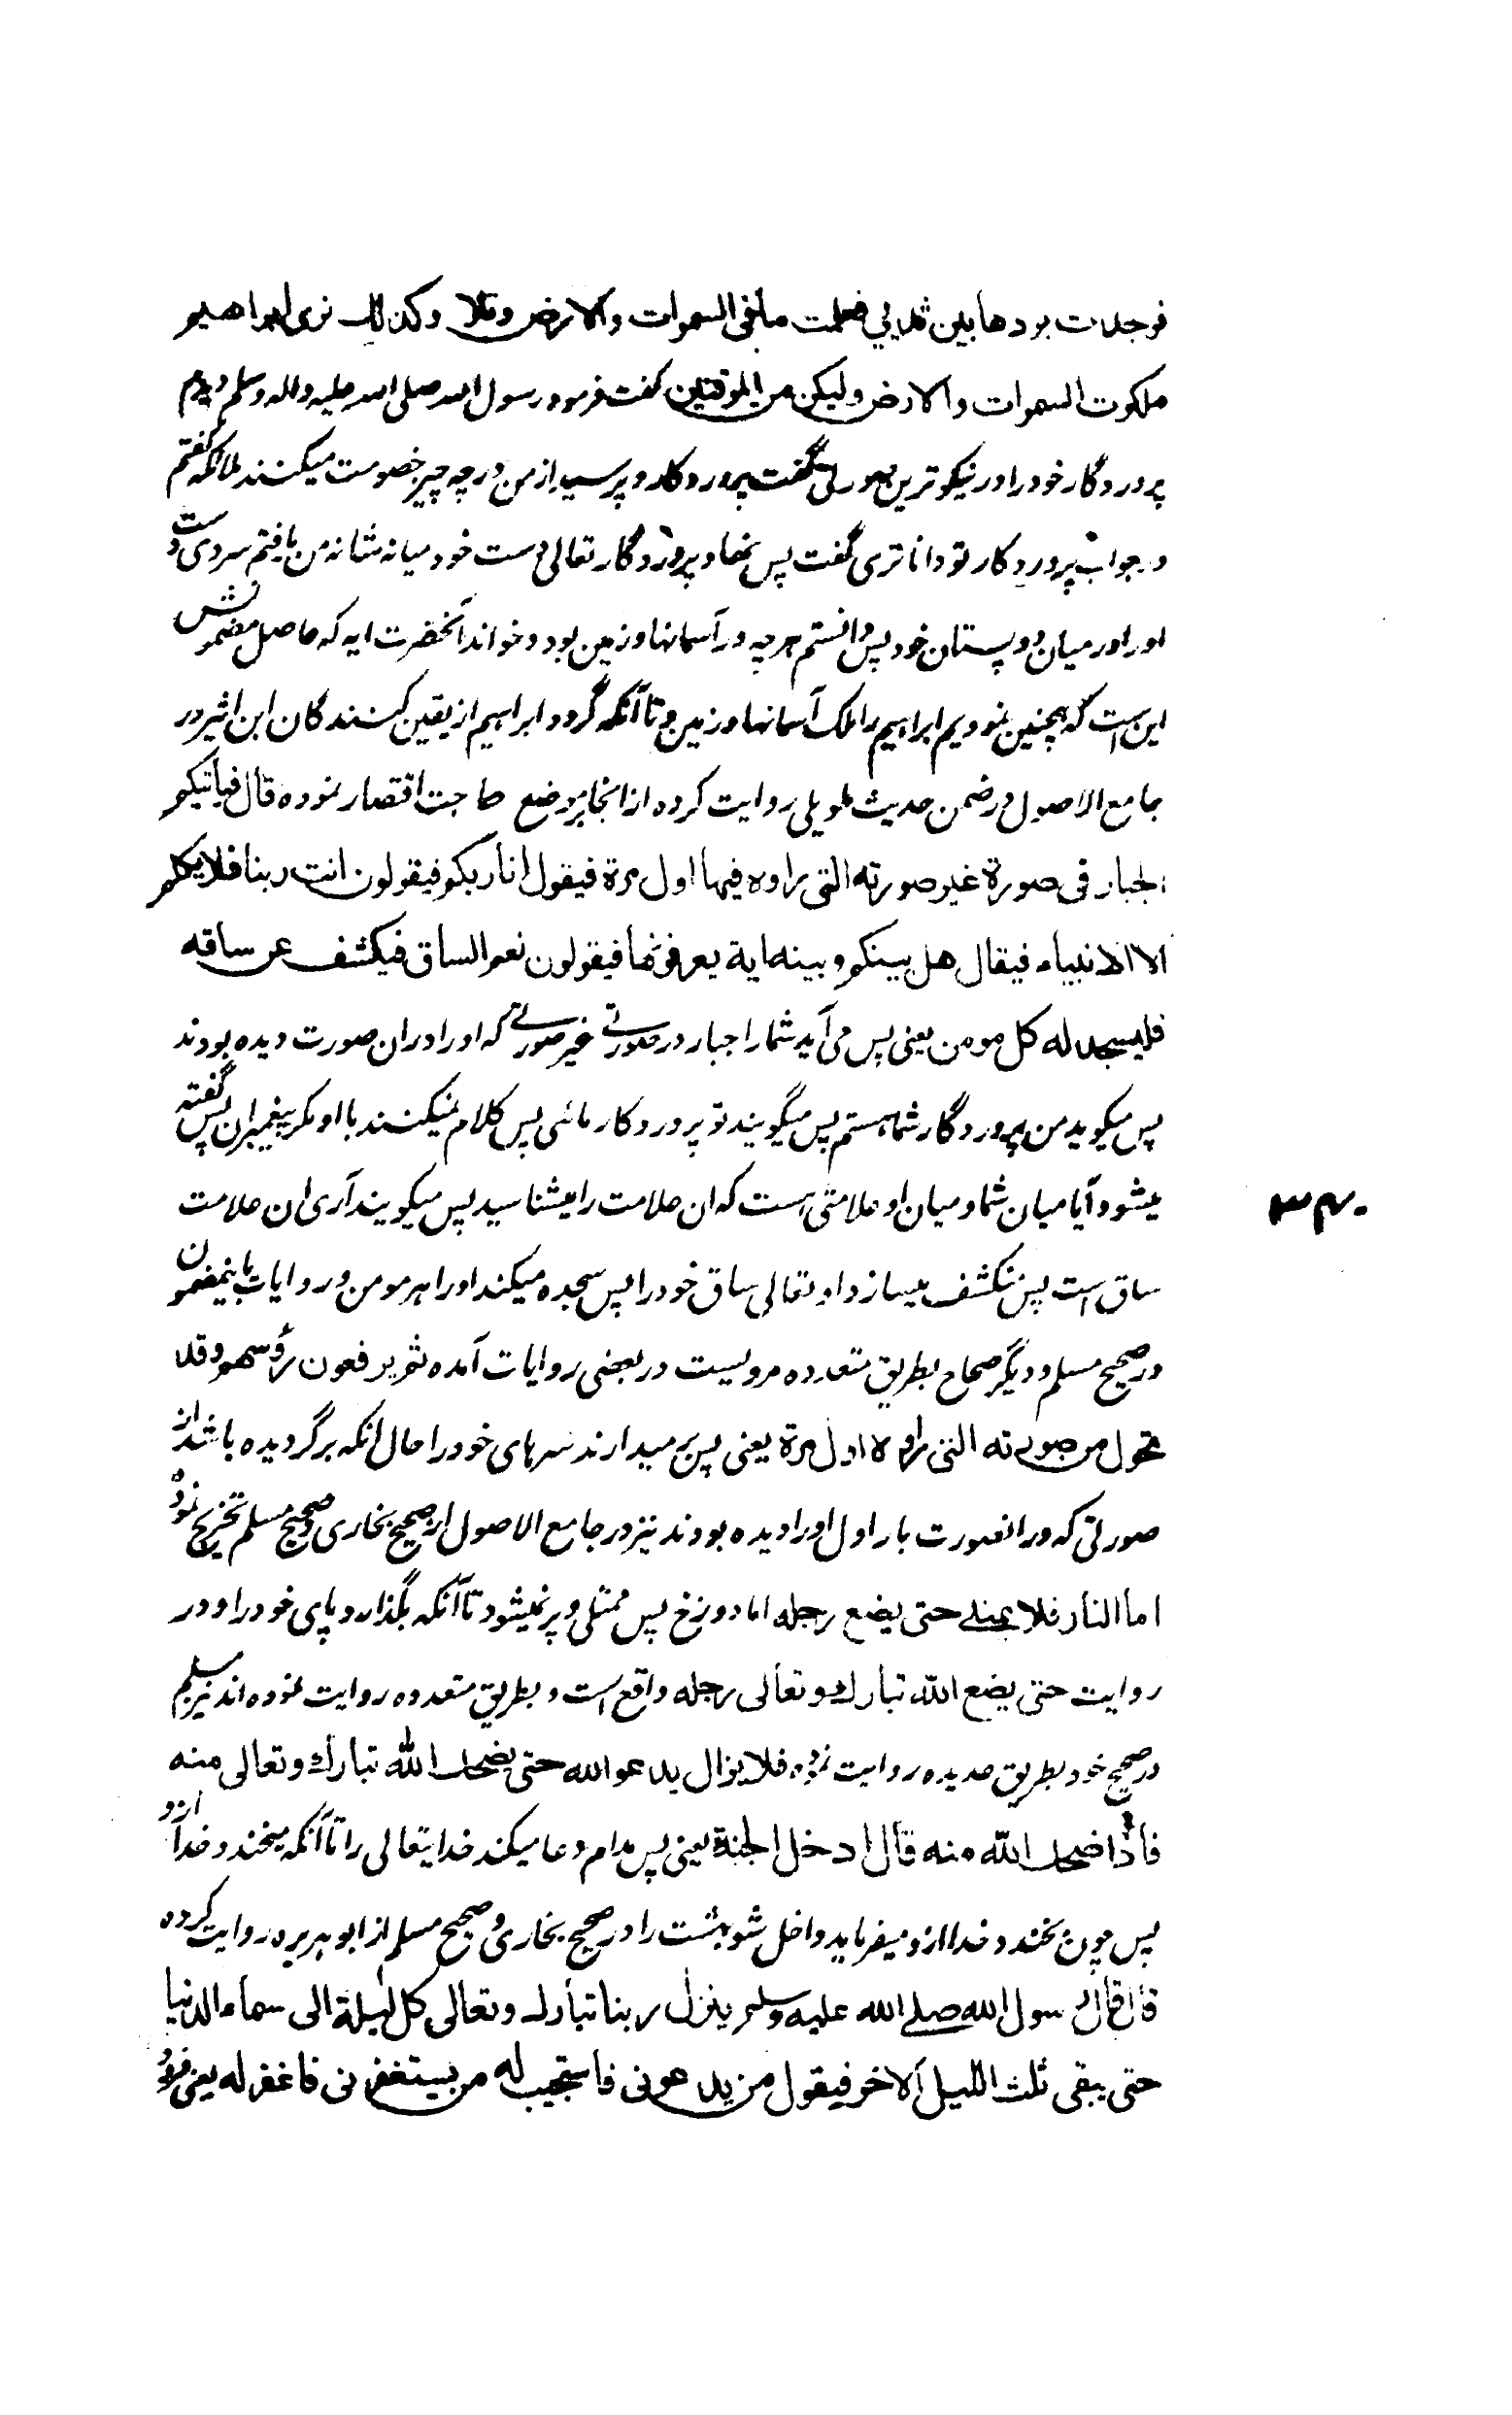 فوجدت بردها بين ثديي فعلمت ما فى السموات والارض وتلا وكذلك نرى ابراهيم
ملكوت السموات والارض وليكون من الموقنين گفت فرمود رسول الله صلى الله عليه واله وسلم ديدم
پروردگار خود را در نيكوترين صورتى گفت پروردكار و پرسيد از من در چه چيز خصومت ميكنند ملائكه گفتم
در جواب پروردكار تو داناترى گفت پس نهاد پروردگار تعالى دست خود ميانه شانه من يافتم سردى دست
او را در ميان دو پستان خود پس دانستم هرچه در آسمانها و زمين بود و خواند آنحضرت ايه كه حاصل مضمونش
اين است كه همچنين نموديم ابراهيم را ملك آسمانها و زمين و تا آنكه گردد ابراهيم از يقين كنندكان ابن اثير در
جامع الاصول در ضمن حديث طويلى روايت كرده از انجا بر موضع حاجت اقتصار نموده قال فيأتيكم
الجبار فى صورة غير صورته التى راوه فيها اول مرة فيقول انا ربكم فيقولون انت ربنا فلا يكلم
الا الانبياء فيقال هل بينكم وبينه اية يعرفونها فيقولون نعم الساق فيكشف عن ساقه
فليسجد له كل مومن يعنى پس مى آيد شما را جبار در صورتے غير صورتے كه او را در ان صورت ديده بودند
پس ميكويد من پروردگار شما هستم پس ميگويند تو پروردكار مائى پس كلام نميكنند با او مكر پيغمبران پس گفته
ميشود آيا ميان شما و ميان او علامتى هست كه ان علامت را ميشناسيد پس ميكويند آرى ان علامت
ساق است پس منكشف ميسازد او تعالى ساق خود را پس سجده ميكند او را هر مومن و روايات باينمضمون
در صحيح مسلم و ديگر صحاح بطريق متعدده مرويست در بعضى روايات آمده ثم يرفعون رؤسهم وقد
تحول من صورته التى راوه اول مرة يعنى پس بر ميدارند سرهاى خود را حال انكه برگرديده باشد از
صورتى كه در انصورت بار اول او را ديده بودند نيز در جامع الاصول از صحيح بخارى و صحيح مسلم تخريج نموده
اما النار فلا تمتلى حتى يضع رجله اما دوزخ پس ممتلى و پر نميشود تا آنكه بگذارد پاى خود را و در
روايت حتى يضع الله تبارك وتعالى رجله واقع است و بطريق متعدده روايت نموده اند نيز مسلم
در صحيح خود بطريق عديده روايت نموده فلا يزال يدعو الله حتى يضحك الله تبارك وتعالى منه
فاذا ضحك الله منه قال ادخل الجنة يعنى پس مدام دعا ميكند خدايتعالى را تا آنكه ميخندد خدا ازو
پس چون بخندد خدا ازو ميفرمايد داخل شو بهشت را در صحيح بخارى و صحيح مسلم از ابو هريره روايت كرده
قال قال رسول الله صلے الله عليه وسلم ينزل ربنا تبارك وتعالى كل ليلة الى سماء الدنيا
حتى يبقى ثلث الليل الاخر فيقول من يدعونى فاستجيب له من يستغفرنى فاغفر له يعنى فرود
۳۴۰